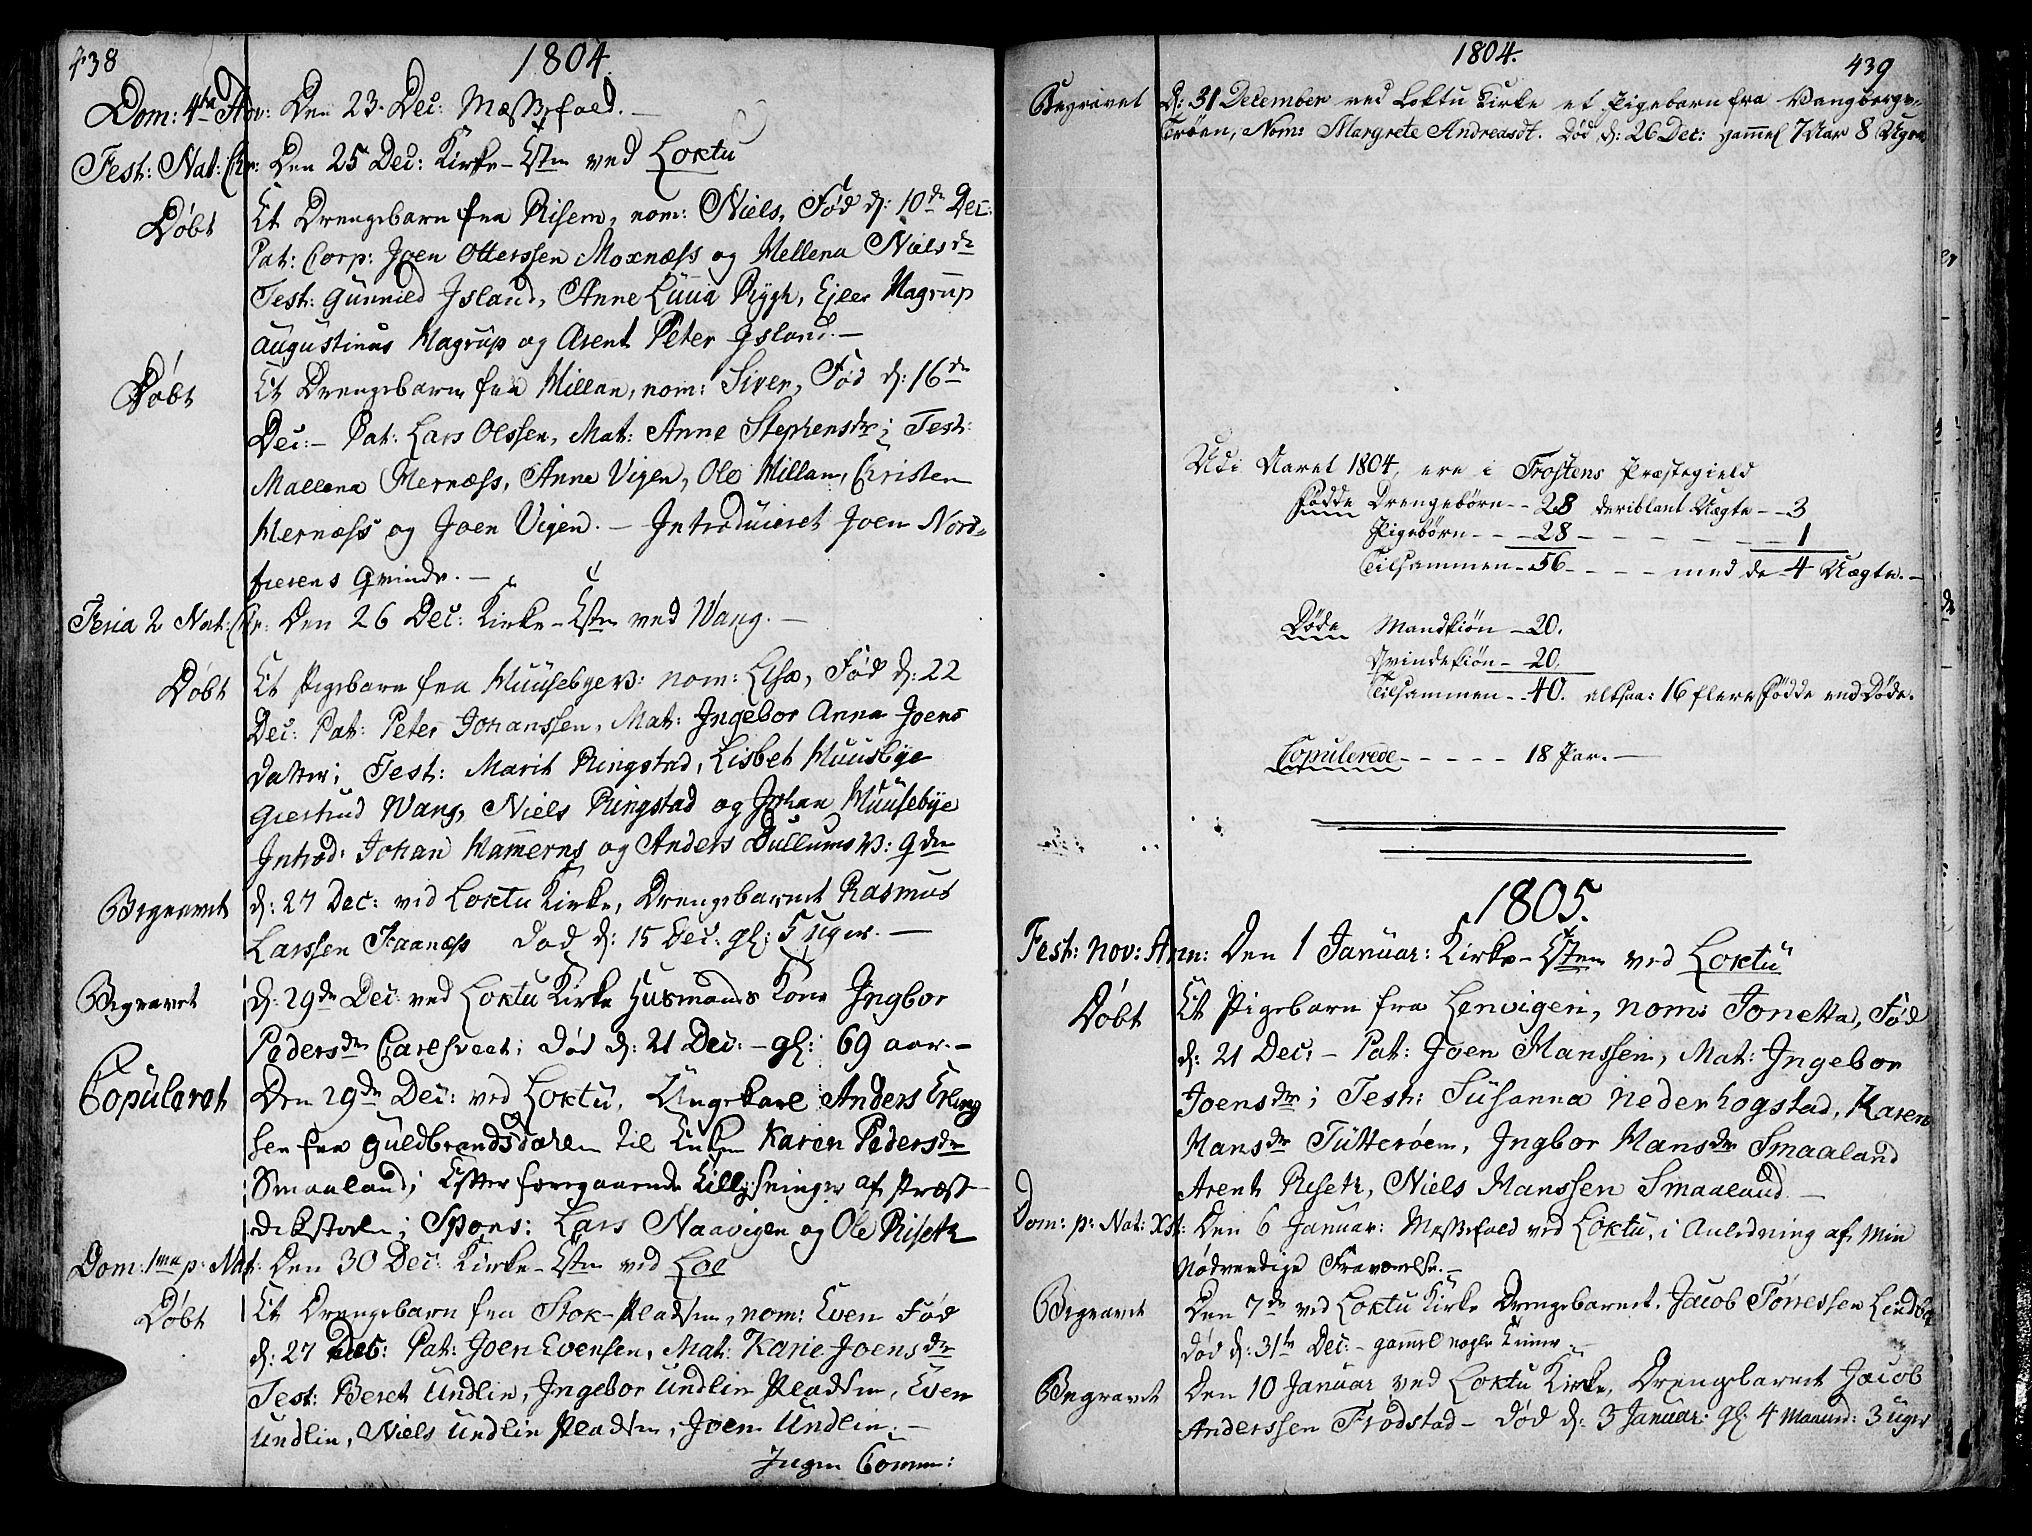 438
1804.
Dom: 4ta Adv: Den 23. Dec: Mæssefald. —
Fest: Nat: Chr: Den 25 Dec: Kirke-Tten ved Loktu
Døbt Et Drengebarn fra Risem, nom: Niels, Fød d: 10de Dec:
Pat: Corp: Joen Otterssen Moxnæss og Mellena Nielsdr
Test: Gunnild Jsland, Anne Lucia Rygh, Ejler Hagrup
Augustinus Hagrup og Arent Peter Jsland. —
Døbt Et Drengebarn fra Hillan, nom: Siver, Fød d: 16de
Dec: — Pat: Lars Olssen, Mat: Anne Stephensdr; Test:
Mallena Hernæss, Anne Vigen, Ole Hillan, Christen
Hernæss og Joen Vigen. — Introduceret Joen Nord-
fierens Qvinde. —
Feria 2 Nat: Chr: Den 26 Dec: Kirke-Tten ved Wang. —
Døbt Et Pigebarn fra Muusebye nom: Elsæ, Fød d: 22
Dec: Pat: Peter Johanssen, Mat: Ingebor Anna Joens
datter; Test: Marit Ringstad, Lisbet Muusbye
Giertrud Wang, Niels Ringstad og Johan Muusebye
Introd: Johan Hamerns og Anders Dullums Qder
Begravet d: 27 Dec: ved Loktu Kirke, Drengebarnet Rasmus
Larssen Faanæss død d: 15 Dec: gl: 5 uger. —
Begravet d: 29de Dec: ved Loktu Kirke Husmands Kone Ingbor
Pedersdr Carlsveet; død d: 21 Dec: — gl: 69 aar. —
Copuleret Den 29de Dec: ved Loktu, Ungekarl Anders Erling
sen fra Guldbrandsdalen til Enken Karen Pedersdr
Smaaland; Efter foregaaende Tillysninger af Præst
dikstolen; Spons: Lars Naavigen og Ole Riseth
Dom: 1ma p: Nat: Den 30 Dec: Kirke-Tten ved Loe
Døbt Et Drengebarn fra Stok-Pladsen, nom: Even Fød
d: 27 Dec: Pat: Joen Evensen, Mat: Karie Joensdr
Test: Beret Undlin, Ingebor Undlin Pladsen, Even
Undlin, Niels Undlin Pladsen, Joen Undlin. —
Ingen Comm:
1804.
439
Begravet D: 31 December ved Loktu Kirke et Pigebarn fra Vangberge-
Trøen, Nom: Margrete Andreasdt. Død d: 26 Dec: gammel 7 Aar 8 Uger
Udi Aaret 1804, ere i Frostens Præstegield
Fødde Drengebørn - - 28 deriblant Uægte - - 3
Pigebørn - - - 28 - - - - - - 1
Tilsammen - 56 - - - - med de 4 Uægte. —
Døde Mandkiøn - 20.
Qvindekiøn - 20.
Tilsammen - - 40. altsaa: 16 flere Fødde end Døde.
Copulerede - - - - - 18 Par. —
1805.
Fest: nov: Ann: Den 1 Januar: Kirke-Tten ved Loktu
Døbt Et Pigebarn fra Lenvigen, nom: Jonetta, Fød
d: 21 Dec: — Pat: Joen Hanssen, Mat: Ingebor
Joensdr; Test: Susanna Nederhogstad, Karen
Hansdr Tutterøen, Ingbor Hansdr Smaaland
Arent Riseth, Niels Hanssen Smaaland. —
Dom: p: Nat: Xst: Den 6 Januar: Messefald ved Loktu, i Anledning af Min
Nødvendige Fraværelse. —
Begravet Den 7de ved Loktu Kirke Drengebarnet Jacob Tørressen Lindb
død d: 31te Dec: — gammel nogle Timer. —
Begravet Den 10 Januar ved Loktu Kirke, Drengebarnet Jacob
Anderssen Frodstad — død d: 3 Januar: gl: 4 Maaned: 3 uger